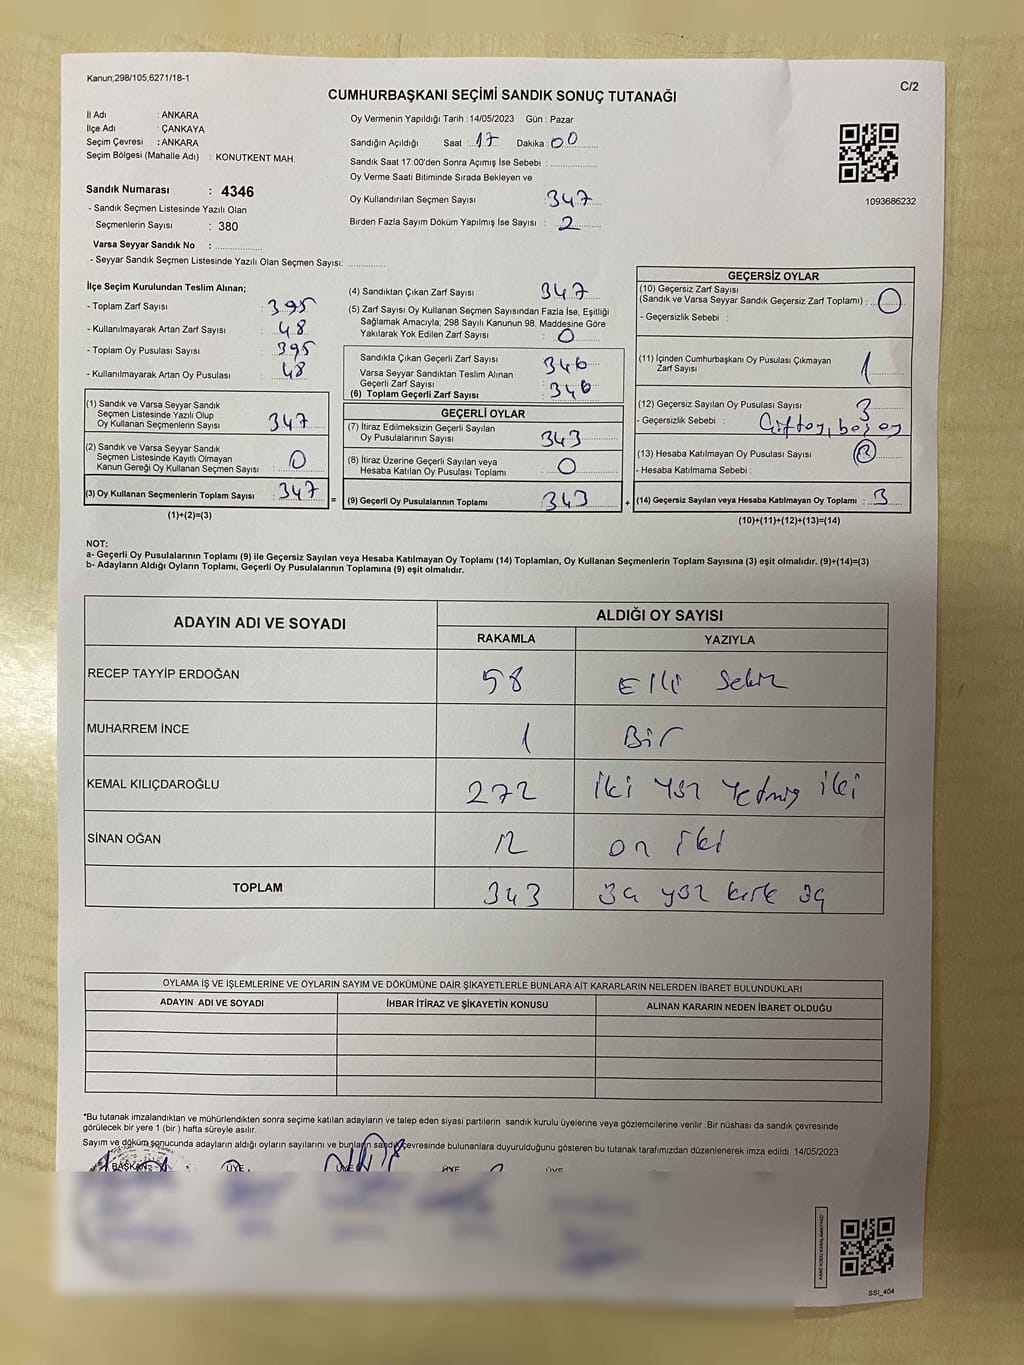 Kanun;298/105,6271/18-1
C/2
CUMHURBAŞKANI SEÇİMİ SANDIK SONUÇ TUTANAĞI
İl Adı : ANKARA
İlçe Adı : ÇANKAYA
Seçim Çevresi : ANKARA
Seçim Bölgesi (Mahalle Adı) : KONUTKENT MAH.
Sandık Numarası : 4346
- Sandık Seçmen Listesinde Yazılı Olan
Seçmenlerin Sayısı : 380
Varsa Seyyar Sandık No :
- Seyyar Sandık Seçmen Listesinde Yazılı Olan Seçmen Sayısı:
Oy Vermenin Yapıldığı Tarih : 14/05/2023 Gün : Pazar
Sandığın Açıldığı Saat : 17 Dakika : 00
Sandık Saat 17:00'den Sonra Açımış İse Sebebi :
Oy Verme Saati Bitiminde Sırada Bekleyen ve
Oy Kullandırılan Seçmen Sayısı : 347
Birden Fazla Sayım Döküm Yapılmış İse Sayısı : 2
1093686232
İlçe Seçim Kurulundan Teslim Alınan;
- Toplam Zarf Sayısı : 395
- Kullanılmayarak Artan Zarf Sayısı : 48
- Toplam Oy Pusulası Sayısı : 395
- Kullanılmayarak Artan Oy Pusulası : 48
(1) Sandık ve Varsa Seyyar Sandık
Seçmen Listesinde Yazılı Olup
Oy Kullanan Seçmenlerin Sayısı : 347
(2) Sandık ve Varsa Seyyar Sandık
Seçmen Listesinde Kayıtlı Olmayan
Kanun Gereği Oy Kullanan Seçmen Sayısı : 0
(3) Oy Kullanan Seçmenlerin Toplam Sayısı : 347
(1)+(2)=(3)
=
(4) Sandıktan Çıkan Zarf Sayısı : 347
(5) Zarf Sayısı Oy Kullanan Seçmen Sayısından Fazla İse, Eşitliği
Sağlamak Amacıyla; 298 Sayılı Kanunun 98. Maddesine Göre
Yakılarak Yok Edilen Zarf Sayısı : 0
Sandıkta Çıkan Geçerli Zarf Sayısı : 346
Varsa Seyyar Sandıktan Teslim Alınan
Geçerli Zarf Sayısı
(6) Toplam Geçerli Zarf Sayısı : 346
GEÇERLİ OYLAR
(7) İtiraz Edilmeksizin Geçerli Sayılan
Oy Pusulalarının Sayısı : 343
(8) İtiraz Üzerine Geçerli Sayılan veya
Hesaba Katılan Oy Pusulası Toplamı : 0
(9) Geçerli Oy Pusulalarının Toplamı : 343
+
GEÇERSİZ OYLAR
(10) Geçersiz Zarf Sayısı
(Sandık ve Varsa Seyyar Sandık Geçersiz Zarf Toplamı) : 0
- Geçersizlik Sebebi :
(11) İçinden Cumhurbaşkanı Oy Pusulası Çıkmayan
Zarf Sayısı : 1
(12) Geçersiz Sayılan Oy Pusulası Sayısı : 3
- Geçersizlik Sebebi : Çift oy, boş oy
(13) Hesaba Katılmayan Oy Pusulası Sayısı :
- Hesaba Katılmama Sebebi :
(14) Geçersiz Sayılan veya Hesaba Katılmayan Oy Toplamı : 3
(10)+(11)+(12)+(13)=(14)
NOT:
a- Geçerli Oy Pusulalarının Toplamı (9) ile Geçersiz Sayılan veya Hesaba Katılmayan Oy Toplamı (14) Toplamları, Oy Kullanan Seçmenlerin Toplam Sayısına (3) eşit olmalıdır. (9)+(14)=(3)
b- Adayların Aldığı Oyların Toplamı, Geçerli Oy Pusulalarının Toplamına (9) eşit olmalıdır.
ADAYIN ADI VE SOYADI
ALDIĞI OY SAYISI
RAKAMLA YAZIYLA
RECEP TAYYİP ERDOĞAN 58 Elli Sekiz
MUHARREM İNCE 1 Bir
KEMAL KILIÇDAROĞLU 272 iki yüz yetmiş iki
SİNAN OĞAN 12 on iki
TOPLAM 343 üç yüz kırk üç
OYLAMA İŞ VE İŞLEMLERİNE VE OYLARIN SAYIM VE DÖKÜMÜNE DAİR ŞİKAYETLERLE BUNLARA AİT KARARLARIN NELERDEN İBARET BULUNDUKLARI
ADAYIN ADI VE SOYADI İHBAR İTİRAZ VE ŞİKAYETİN KONUSU ALINAN KARARIN NEDEN İBARET OLDUĞU
*Bu tutanak imzalandıktan ve mühürlendikten sonra seçime katılan adayların ve talep eden siyasi partilerin sandık kurulu üyelerine veya gözlemcilerine verilir .Bir nüshası da sandık çevresinde
görülecek bir yere 1 (bir ) hafta süreyle asılır.
Sayım ve döküm sonucunda adayların aldığı oyların sayılarını ve bunların sandık çevresinde bulunanlara duyurulduğunu gösteren bu tutanak tarafımızdan düzenlenerek imza edildi. 14/05/2023
BAŞKAN ÜYE ÜYE ÜYE ÜYE
SSI_404